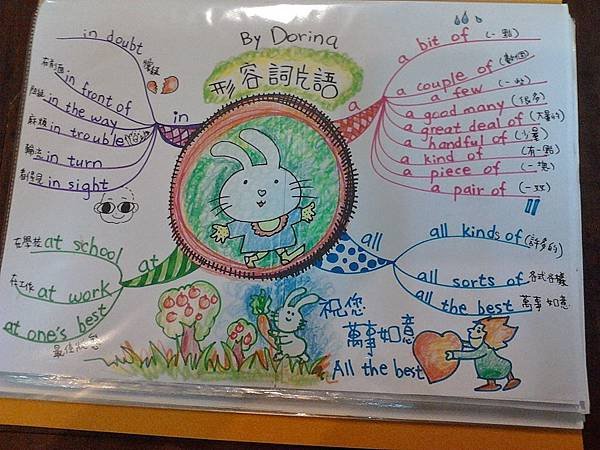 By Dorina
形容詞片語
in
in doubt 懷疑
在前面 in front of
in the way
麻煩 in trouble
輪流 in turn
看得見 in sight
a
a bit of (一點)
a couple of (數個)
a few (一些)
a good many (很多)
a great deal of (大量的)
a handful of (少量)
a kind of (有一點)
a piece of (一塊)
a pair of (一双)
at
在學校 at school
在工作 at work
at one's best
最佳狀態
all
all kinds of (許多的)
all sorts of 各式各樣
all the best 萬事如意
祝您
萬事如意
All the best